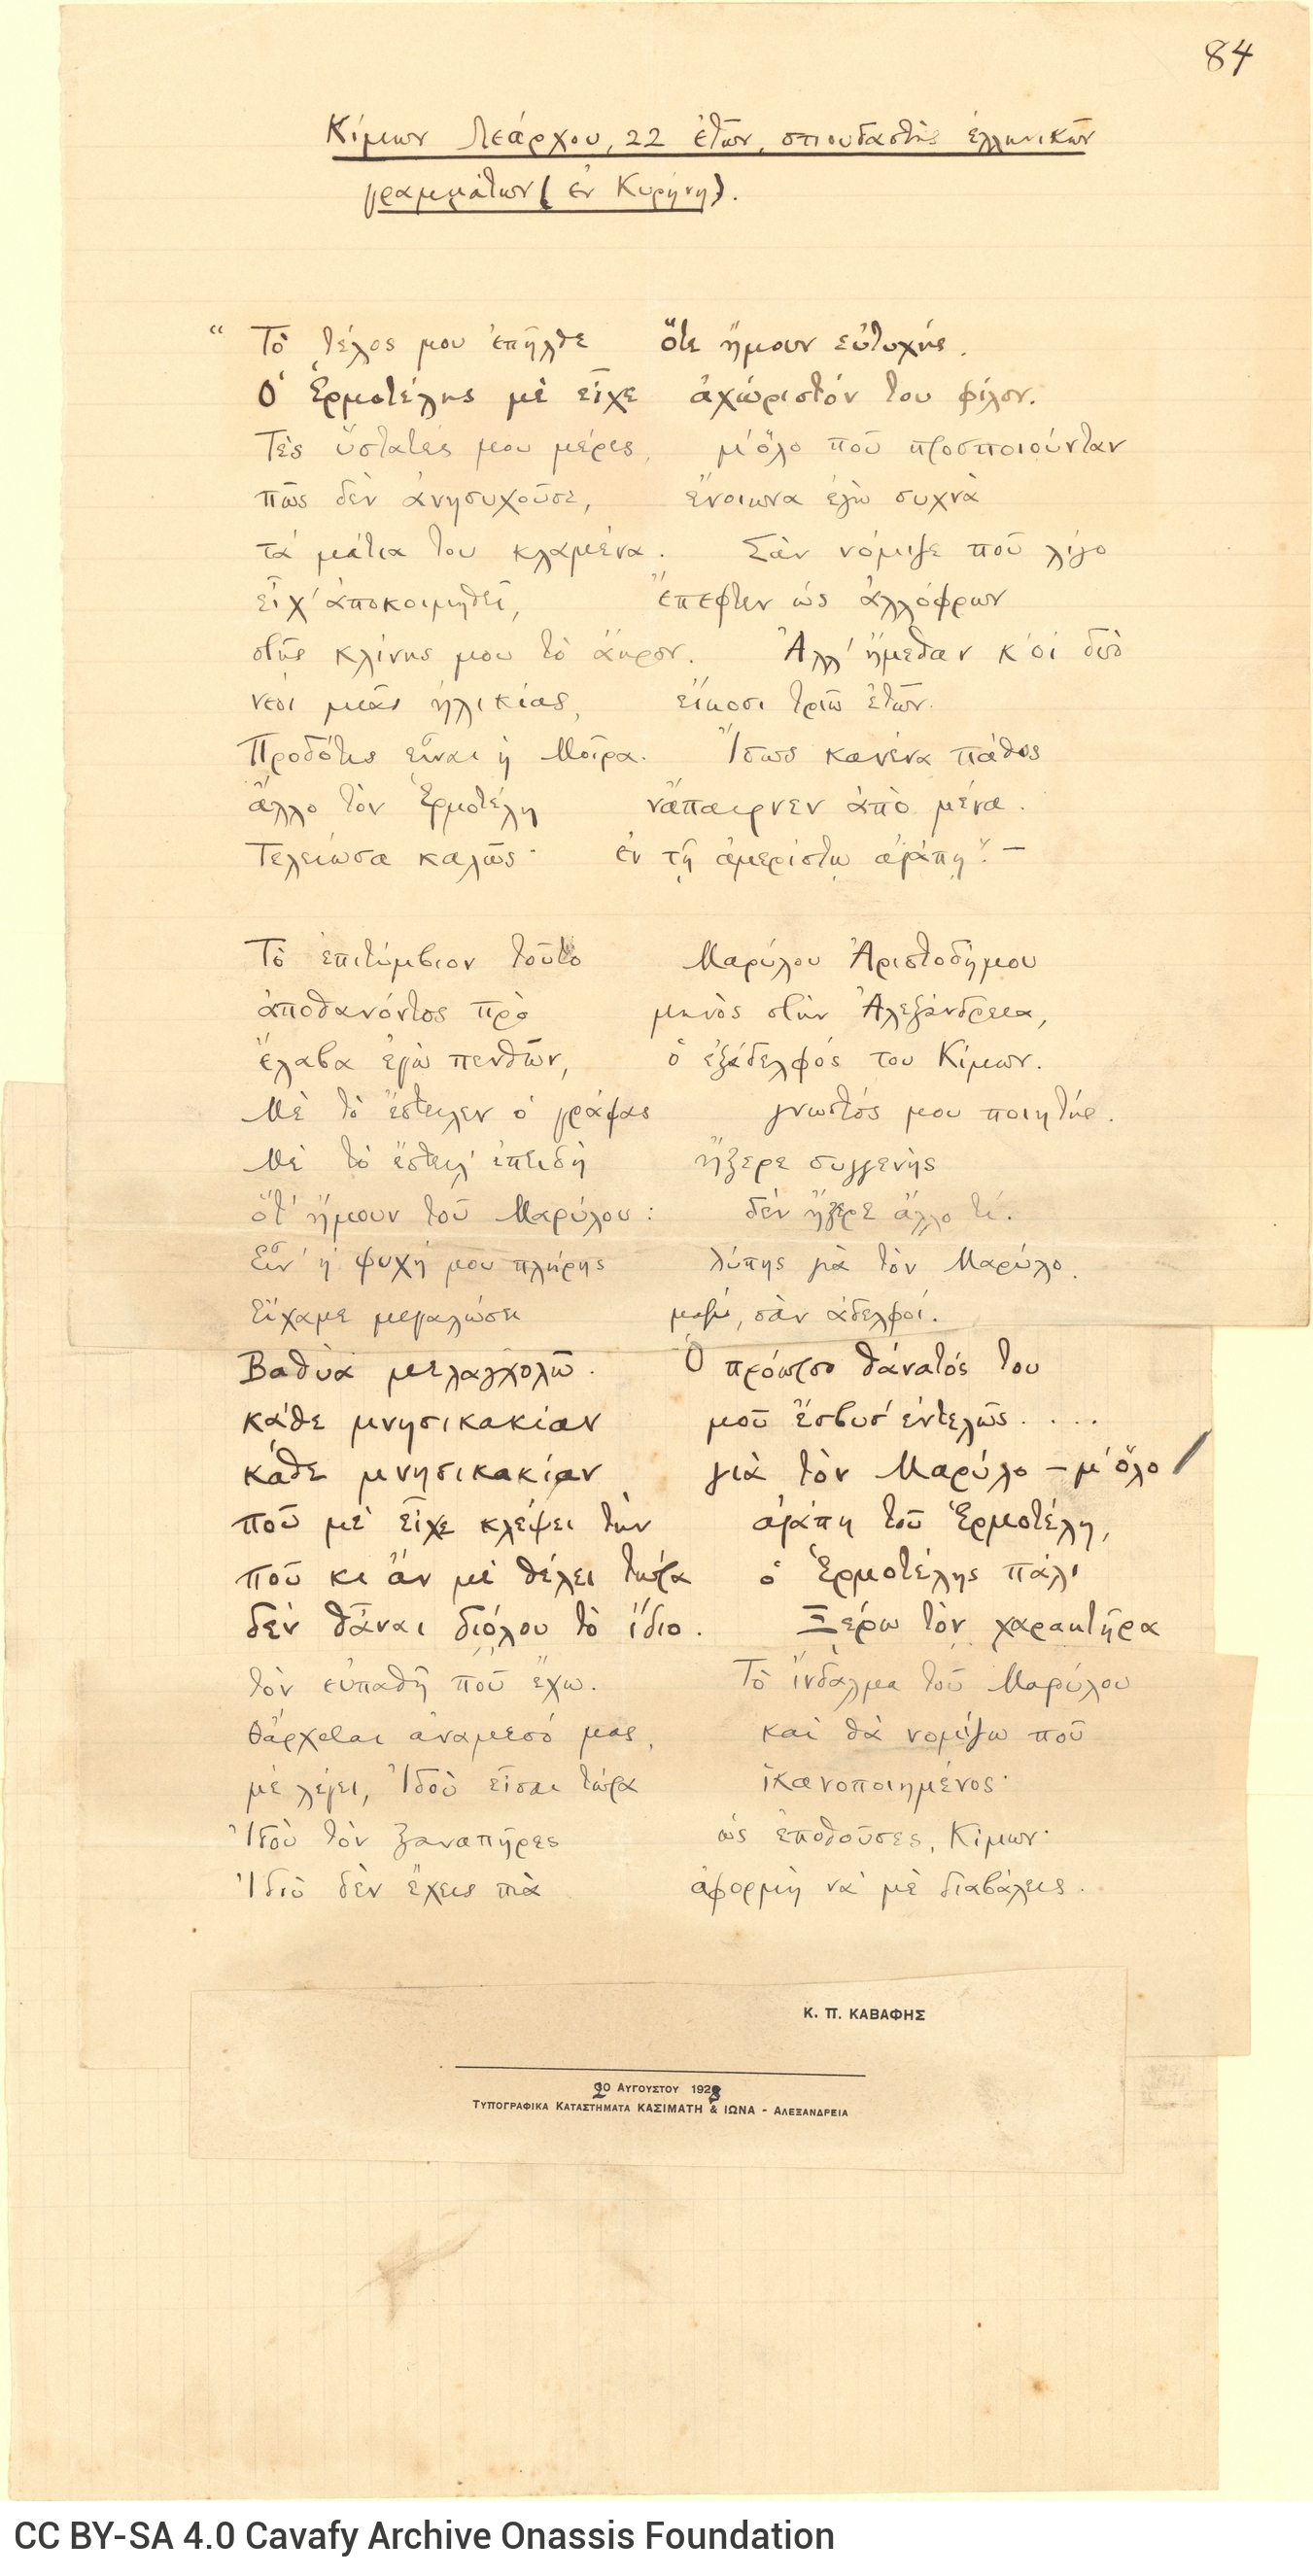 84
Κίμων Λεάρχου, 22 ἐτῶν, σπουδαστὴς ἑλληνικῶν
γραμμάτων (ἐν Κυρήνῃ).
“ Τὸ τέλος μου ἐπῆλθε ὅτε ἤμουν εὐτυχής.
Ὁ Ἑρμοτέλης μὲ εἶχε ἀχώριστόν του φίλον.
Τὲς ὕστατές μου μέρες, μ’ ὅλο ποῦ προσποιούνταν
πῶς δὲν ἀνησυχοῦσε, ἔνοιωνα ἐγὼ συχνὰ
τὰ μάτια του κλαμένα. Σὰν νόμιζε ποῦ λίγο
εἶχ’ ἀποκοιμηθεῖ, ἔπεφτεν ὡς ἀλλόφρων
στῆς κλίνης μου τὸ ἄκρον. Ἀλλ’ ἤμεθαν κ’ οἱ δυὸ
νέοι μιᾶς ἡλικίας, εἴκοσι τριῶ ἐτῶν.
Προδότις εἶναι ἡ Μοῖρα. Ἴσως κανένα πάθος
ἄλλο τὸν Ἑρμοτέλη νἄπαιρνεν ἀπὸ μένα.
Τελείωσα καλῶς· ἐν τῇ ἀμερίστῳ ἀγάπῃ”. —
Τὸ ἐπιτύμβιον τοῦτο Μαρύλου Ἀριστοδήμου
ἀποθανόντος πρὸ μηνὸς στὴν Ἀλεξάνδρεια,
ἔλαβα ἐγὼ πενθῶν, ὁ ἐξάδελφός του Κίμων.
Μὲ τὸ ἔστειλεν ὁ γράψας γνωστός μου ποιητής.
Μὲ τὸ ἔστειλ’ ἐπειδὴ ἤξερε συγγενὴς
ὅτ’ ἤμουν τοῦ Μαρύλου: δὲν ἤξερε ἄλλο τί.
Εἶν’ ἡ ψυχή μου πλήρης λύπης γιὰ τὸν Μαρύλο.
Εἴχαμε μεγαλώσει μαζύ, σὰν ἀδελφοί.
Βαθυὰ μελαγχολῶ. Ὁ πρόωρος θάνατός του
κάθε μνησικακίαν μοῦ ἔσβυσ’ ἐντελῶς. . . .
κάθε μνησικακίαν γιὰ τὸν Μαρύλο — μ’ ὅλο
ποῦ μὲ εἶχε κλέψει τὴν ἀγάπη τοῦ Ἑρμοτέλη,
ποῦ κι ἂν μὲ θέλει τώρα ὁ Ἑρμοτέλης πάλι
δὲν θἆναι διόλου τὸ ἴδιο. Ξέρω τὸν χαρακτῆρα
τὸν εὐπαθῆ ποῦ ἔχω. Τὸ ἴνδαλμα τοῦ Μαρύλου
θἄρχεται ἀνάμεσό μας, καὶ θὰ νομίζω ποῦ
μὲ λέγει, Ἰδοὺ εἶσαι τώρα ἱκανοποιημένος·
Ἰδοὺ τὸν ξαναπῆρες ὡς ἐποθοῦσες, Κίμων·
Ἰδοὺ δὲν ἔχεις πιὰ ἀφορμὴ νὰ μὲ διαβάλεις.
Κ. Π. ΚΑΒΑΦΗΣ
20 ΑΥΓΟΥΣΤΟΥ 1928
ΤΥΠΟΓΡΑΦΙΚΑ ΚΑΤΑΣΤΗΜΑΤΑ ΚΑΣΙΜΑΤΗ & ΙΩΝΑ - ΑΛΕΞΑΝΔΡΕΙΑ
CC BY-SA 4.0 Cavafy Archive Onassis Foundation